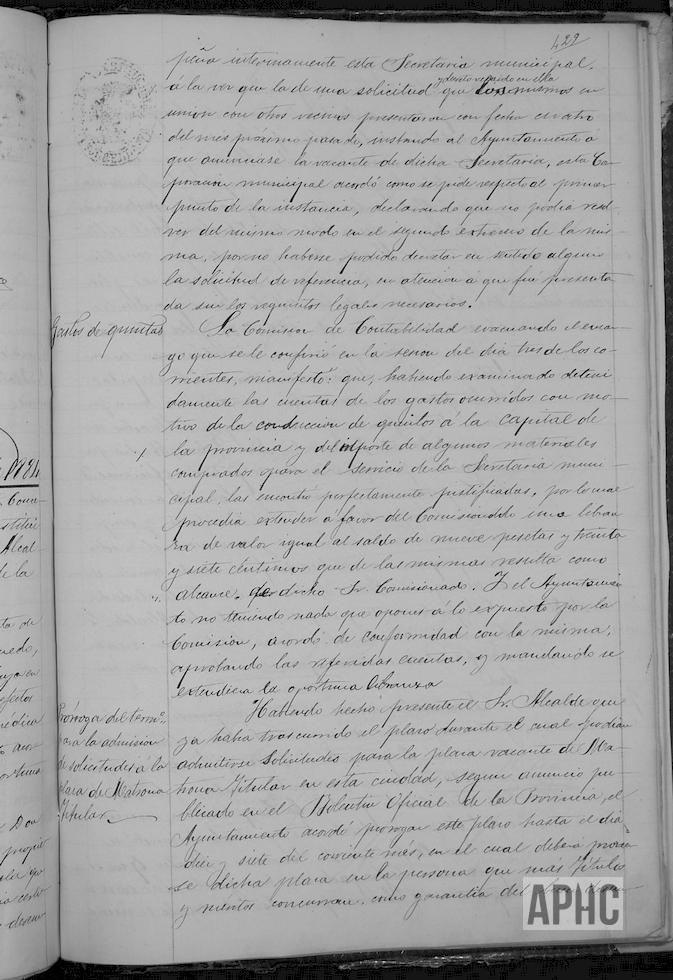 429
peña interinamente esta Secretaria municipal,
y decreto recaido en ella
á la vez que la de una solicitud que los mismos en
union con otros vecinos presentaron con fecha cuatro
del mes próximo pasado, instando al Ayuntamiento a
que anunciase la vacante de dicha Secretaria, esta Cor-
poración municipal acordó como se pide respecto al primer
punto de la instancia, declarando que no podia resol-
ver del mismo modo en el segundo extremo de la mis-
ma, por no haberse podido decretar en sentido alguno
la solicitud de referencia, en atencion á que fué presenta-
da sin los requisitos legales necesarios.
Gastos de quintas
La Comision de Contabilidad evacuando el encar-
go que se le confirió en la sesion del dia tres de los co-
rrientes, manifestó: que, habiendo examinado deteni-
damente las cuentas de los gastos ocurridos con mo-
tivo de la conduccion de quintos á la capital de
la provincia y del importe de algunos materiales
comprados para el servicio de la Secretaria muni-
cipal, las encontró perfectamente justificadas, por lo cual
procedia extender á favor del Comisionado una libran-
za de valor igual al saldo de nueve pesetas y treinta
y siete céntimos que de las mismas resulta como
alcance. por dicho Sr. Comisionado. Y el Ayuntamien-
to no teniendo nada que oponer á lo expuesto por la
Comision, acordó de conformidad con la misma,
aprobando las referidas cuentas, y mandando se
extendiera la oportuna libranza
Prórroga del termº.
para la admision
de solicitudes á la
plaza de Matrona
Titular
Habiendo hecho presente el Sr. Alcalde que
ya habia trascurrido el plazo durante el cual podian
admitirse Solicitudes para la plaza vacante de Ma-
trona titular en esta ciudad, segun anuncio pu-
blicado en el Boletin Oficial de la Provincia, el
Ayuntamiento acordó prorrogar este plazo hasta el dia
diez y siete del corriente més, en el cual deberá proveer-
se dicha plaza en la persona que mas títulos
y meritos concurran, como garantia del
APHC